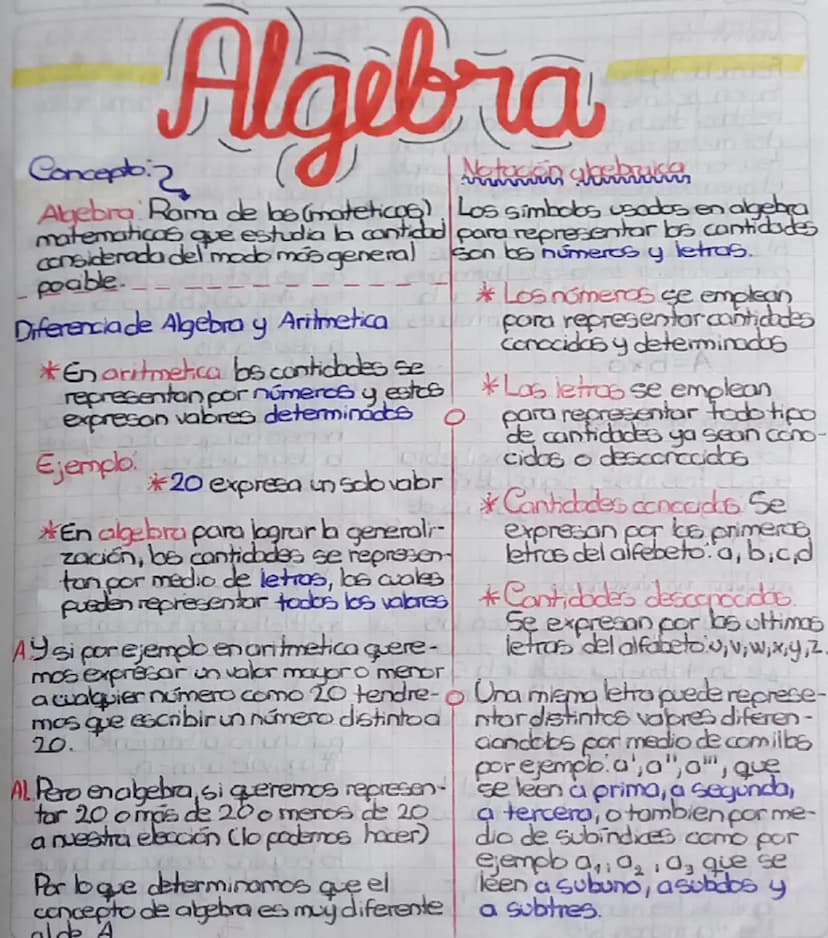 Algebra
Concepto:
Algebra: Rama de los (mateticas)
matematicas que estudia la cantidad
considerada del modo más general
pocible.
Diferencia de Algebra y Aritmetica
*En aritmetica las cantidades se
representan por números y estos
expresan valores determinados
Ejemplo:
*20 expresa un solo valor
*En algebra para lograr la generali-
zación, las cantidades se represen-
tan por medio de letras, las cuales
pueden representar todos los valores
A Y si por ejemplo en aritmetica quere-
mos expresar un valor mayor o menor
a cualquier número como 20 tendre-
mos que escribir un número distinto a
20.
AL Pero en algebra, si queremos represen-
tar 20 o más de 20 o menos de 20
a nuestra elección (lo podemos hacer)
Por lo que determinamos que el
concepto de algebra es muy diferente
al de A
Notación algebraica
Los símbolos usados en algebra
para representar las cantidades
son los números y letras.
* Los números se emplean
para representar cantidades
conocidas y determinadas
*Las letras se emplean
para representar todo tipo
de cantidades ya sean cono-
cidas o desconocidas
*Cantidades conocidas Se
expresan por las primeras
letras del alfebeto: a, b, c, d
*Cantidades desconocidas.
Se expresan por las ultimas
letras del alfabeto: u, v, w, x, y, z.
Una misma letra puede represe-
ntar distintos valores diferen-
ciandolos por medio de comillas
por ejemplo: a', a'', a''', que
se leen a prima, a segunda,
a tercera, o tambien por me-
dio de subindices como por
ejemplo a₁, a₂, a₃ que se
leen a subuno, a subdos y
a subtres.